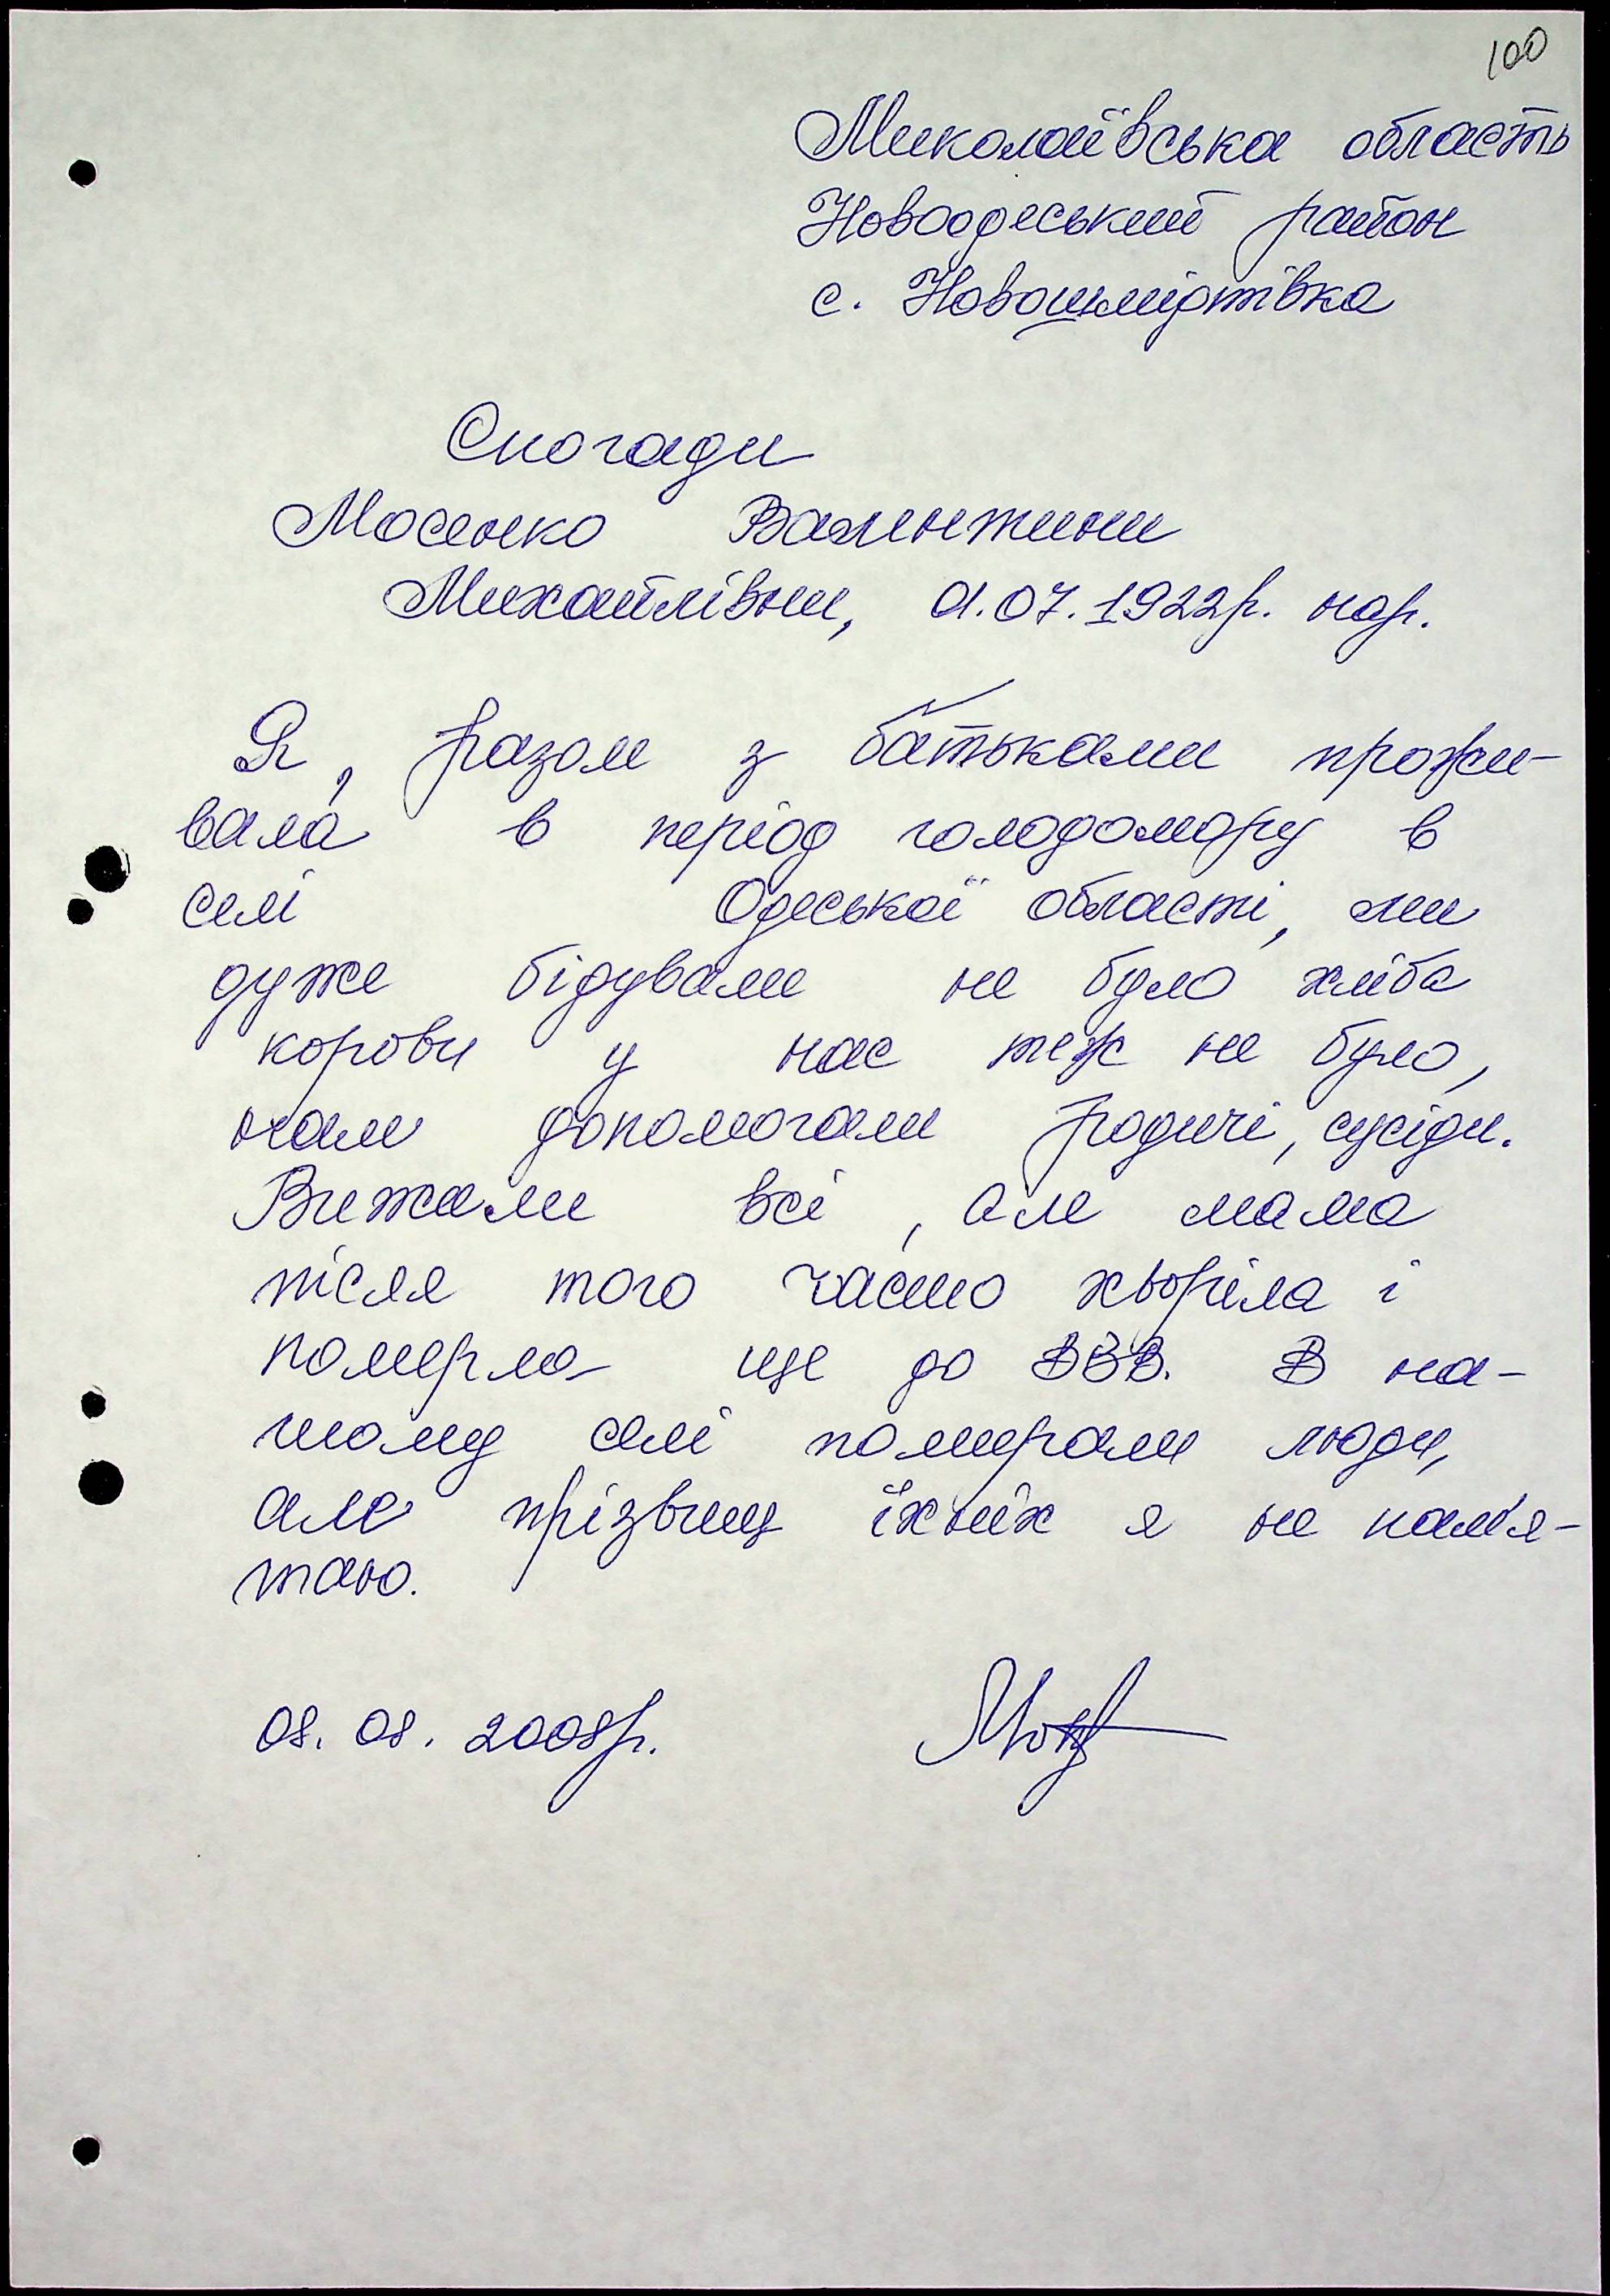 100
Миколаївська область
Новоодеський район
с. Новошмідтівка
Спогади
Мосенко Валентини
Михайлівни, 01.07.1922р. нар.
Я, разом з батьками прожи-
вала в період голодомору в
селі Одеської області, ми
дуже бідували не було хліба
корови у нас теж не було,
нам допомогали родичі, сусіди.
Вижили всі, але мама
після того часто хворіла і
померла ще до ВВВ. В на-
шому селі померали люди,
але прізвищ їхніх я не пам'я-
таю.
08.08.2008р.